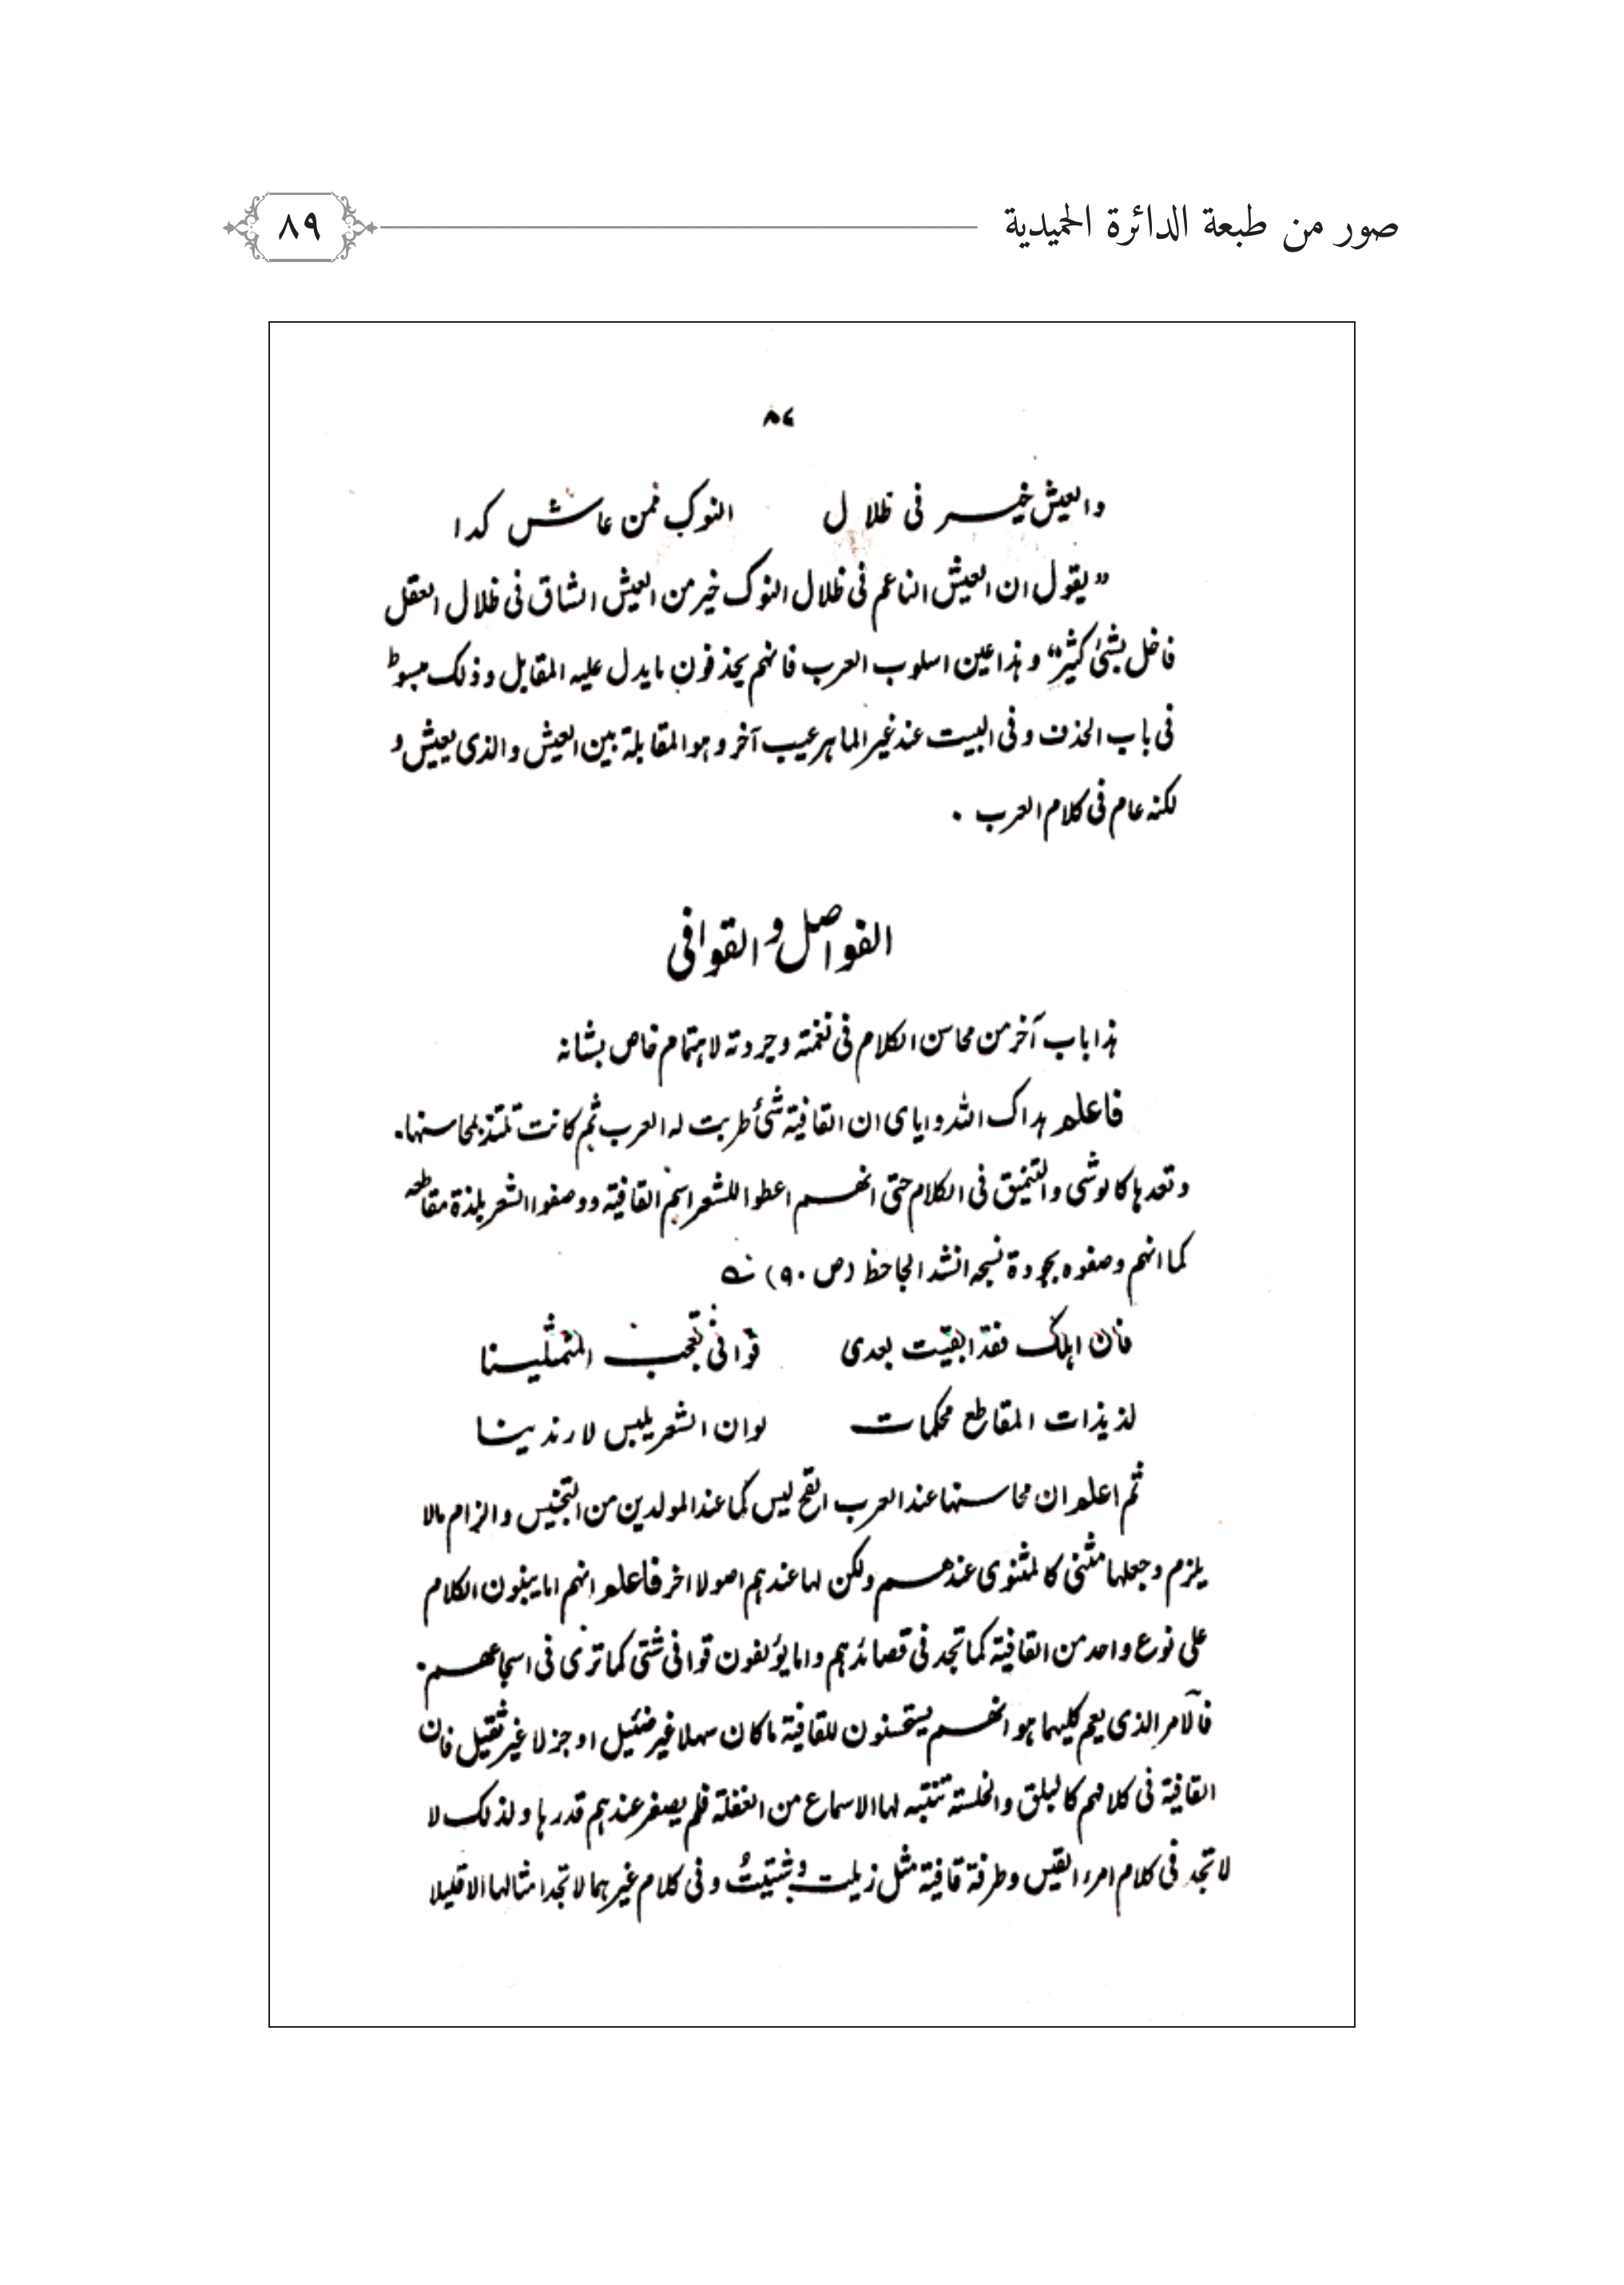 صور من طبعة الدائرة الحميدية
٨٩
٨٤
والعيش خير فى ظلال النوك ممن عاش كدا
”يقول ان العيش الناعم فى ظلال النوك خير من العيش الشاق فى ظلال العقل
فاخل بشئ كثير“ وهذا عين اسلوب العرب فانهم يحذفون ما يدل عليه المقابل وذلك مبسوط
فى باب الحذف وفى البيت عند غير الماهر عيب آخر وهو المقابلة بين العيش والذى يعيش و
لكنه عام فى كلام العرب ۔
الفواصل و القوافى
هذا باب آخر من محاسن الكلام فى نغمته وجردته لاهتمام خاص بشانه
فاعلم هداك الله واياى ان القافية شئ طربت له العرب ثم كانت تلتذ بمحاسنها۔
وتعدها كالوشى والتنميق فى الكلام حتى انهم اعطوا للشعر اسم القافية ووصفوا الشعر بلذة مقاطعه
كما انهم وصفوه بجودة نسجه انشد الجاحظ (ص ٩٠)
فان اهلك فقد ابقيت بعدى قوافى تعجب المتمثلينا
لذيذات المقاطع محكمات لوان الشعر يلبس لارتدينا
ثم اعلم ان محاسنها عند العرب القح ليس كما عند المولدين من التجنيس والزام مالا
يلزم وجعلها مثنى كالمثنوى عندهم ولكن لها عندهم اصولا اخر فاعلم انهم اما يبنون الكلام
على نوع واحد من القافية كما تجد فى قصائدهم واما يؤلفون قوافى شتى كما ترى فى اسجاعهم۔
فالامر الذى يعم كليهما هو انهم يستحسنون للقافية ماكان سهلا غير ضئيل او جزلا غير ثقيل فان
القافية فى كلامهم كالبلق والخلسته تنتبه لها الاسماع من الغفلة فلم يصغر عندهم قدرها ولذلك لا
لا تجد فى كلام امرء القيس وطرفة قافية مثل زيلت وشتيتُ وفى كلام غيرهما لا تجد امثالها الا قليلا